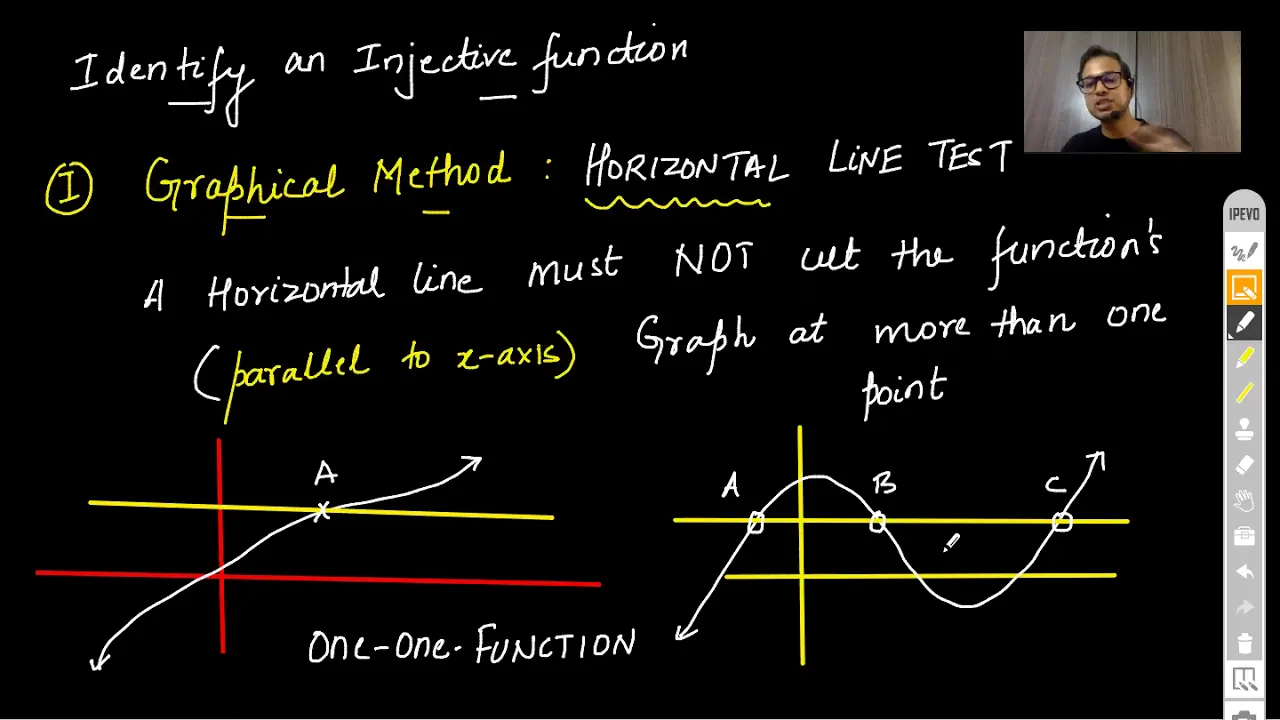 Identify an Injective function
I Graphical Method : HORIZONTAL LINE TEST
A Horizontal line must NOT cut the function's
(parallel to x-axis) Graph at more than one
point
A
A B C
One-One-FUNCTION
IPEVO